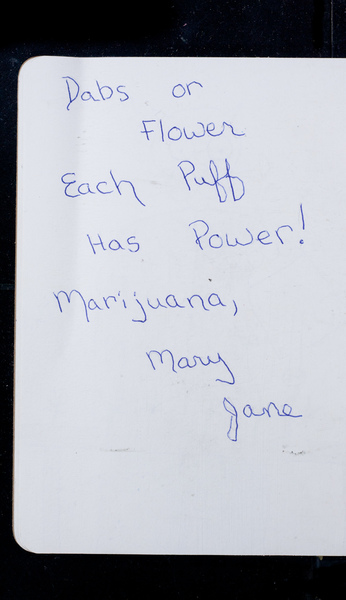 Dabs or
Flower
Each Puff
Has Power!
Marijuana,
Mary
Jane